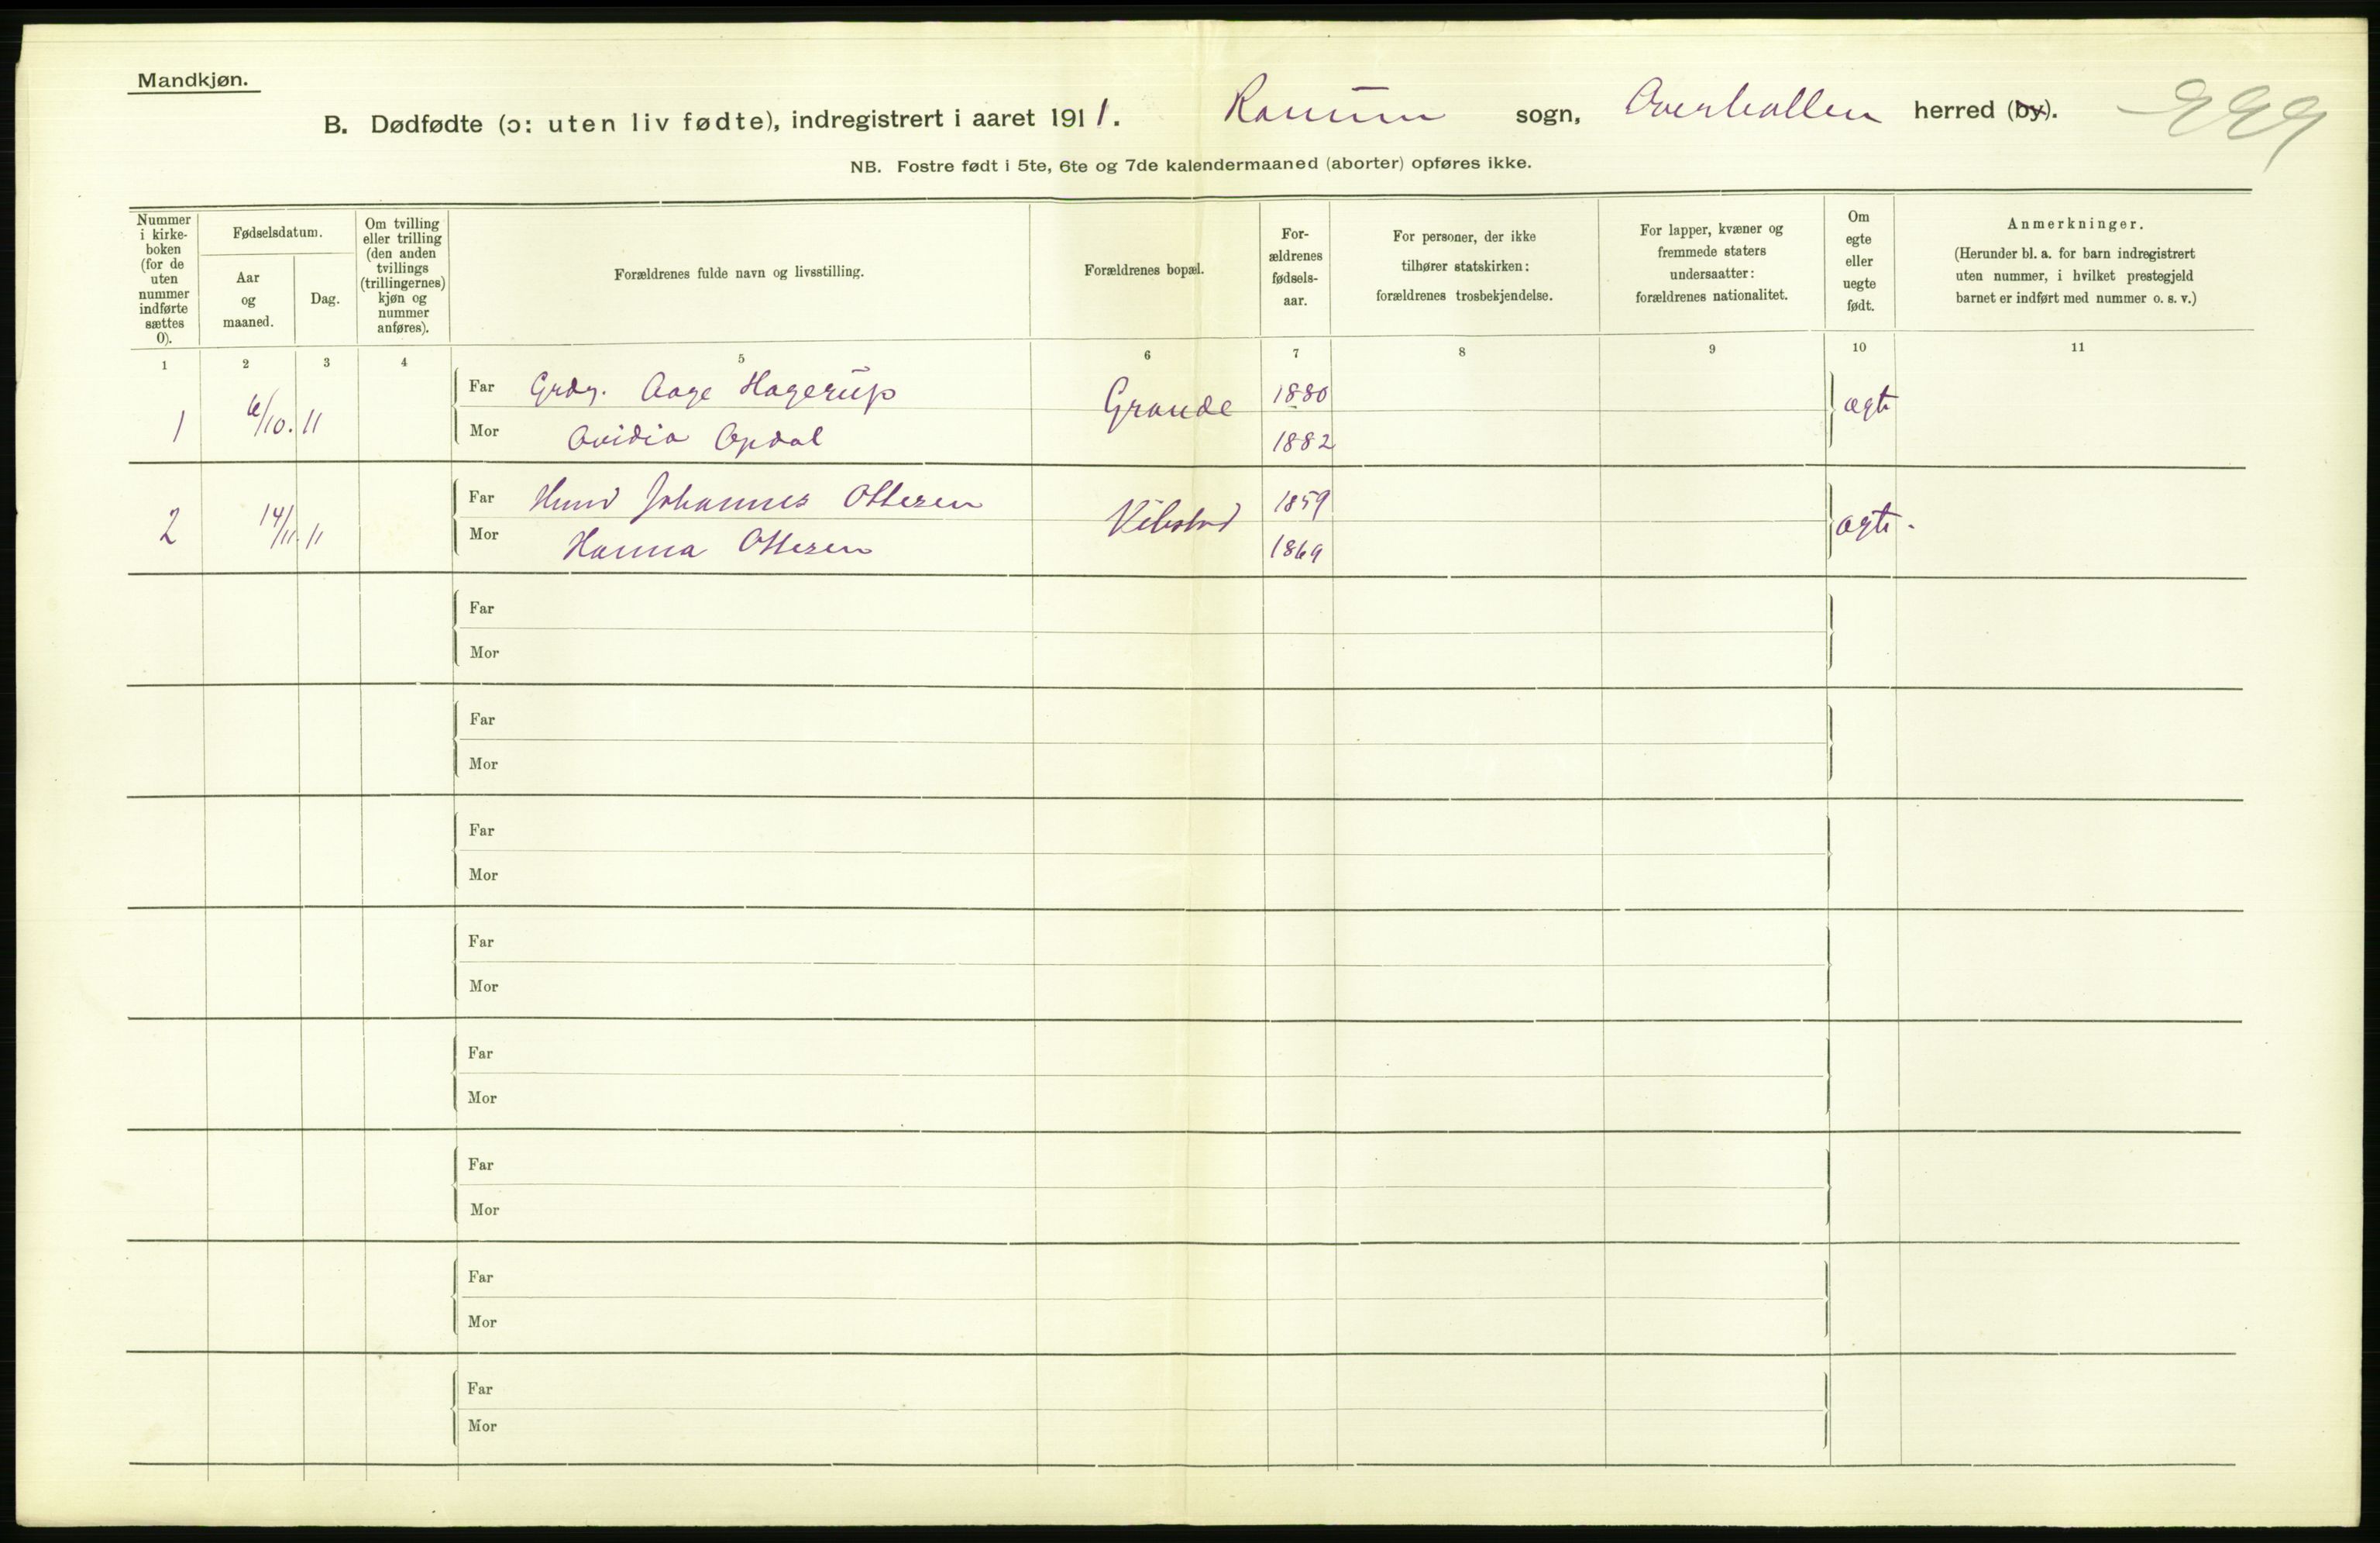 Mandkjøn.
B. Dødfødte (ɔ: uten liv fødte), indregistrert i aaret 1911. Ranum sogn, Overhallen herred (by).
NB. Fostre født i 5te, 6te og 7de kalendermaaned (aborter) opføres ikke.
Nummer
i kirke-
boken
(for de
uten
nummer
indførte
sættes
0).
Fødselsdatum.
Aar
og
maaned.
Dag.
Om tvilling
eller trilling
(den anden
tvillings
(trillingernes)
kjøn og
nummer
anføres).
Forældrenes fulde navn og livsstilling.
Forældrenes bopæl.
For-
ældrenes
fødsels-
aar.
For personer, der ikke
tilhører statskirken:
forældrenes trosbekjendelse.
For lapper, kvæner og
fremmede staters
undersaatter:
forældrenes nationalitet.
Om
egte
eller
uegte
født.
Anmerkninger.
(Herunder bl. a. for barn indregistrert
uten nummer, i hvilket prestegjeld
barnet er indført med nummer o. s. v.)
1 2 3 4 5 6 7 8 9 10 11
1 6/10. 11 Far Grdg. Aage Hagerup Grande 1880 ægte
Mor Ovidia Opdal 1882
2 14/11. 11 Far Hmd Johannes Ottesen Vibstad 1859 ægte.
Mor Hanna Ottesen 1869
Far
Mor
Far
Mor
Far
Mor
Far
Mor
Far
Mor
Far
Mor
Far
Mor
Far
Mor